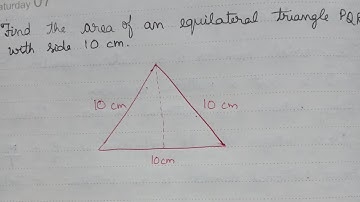 aturday 07
Find the area of an equilateral triangle PQR
with side 10 cm.
10 cm
10 cm
10cm